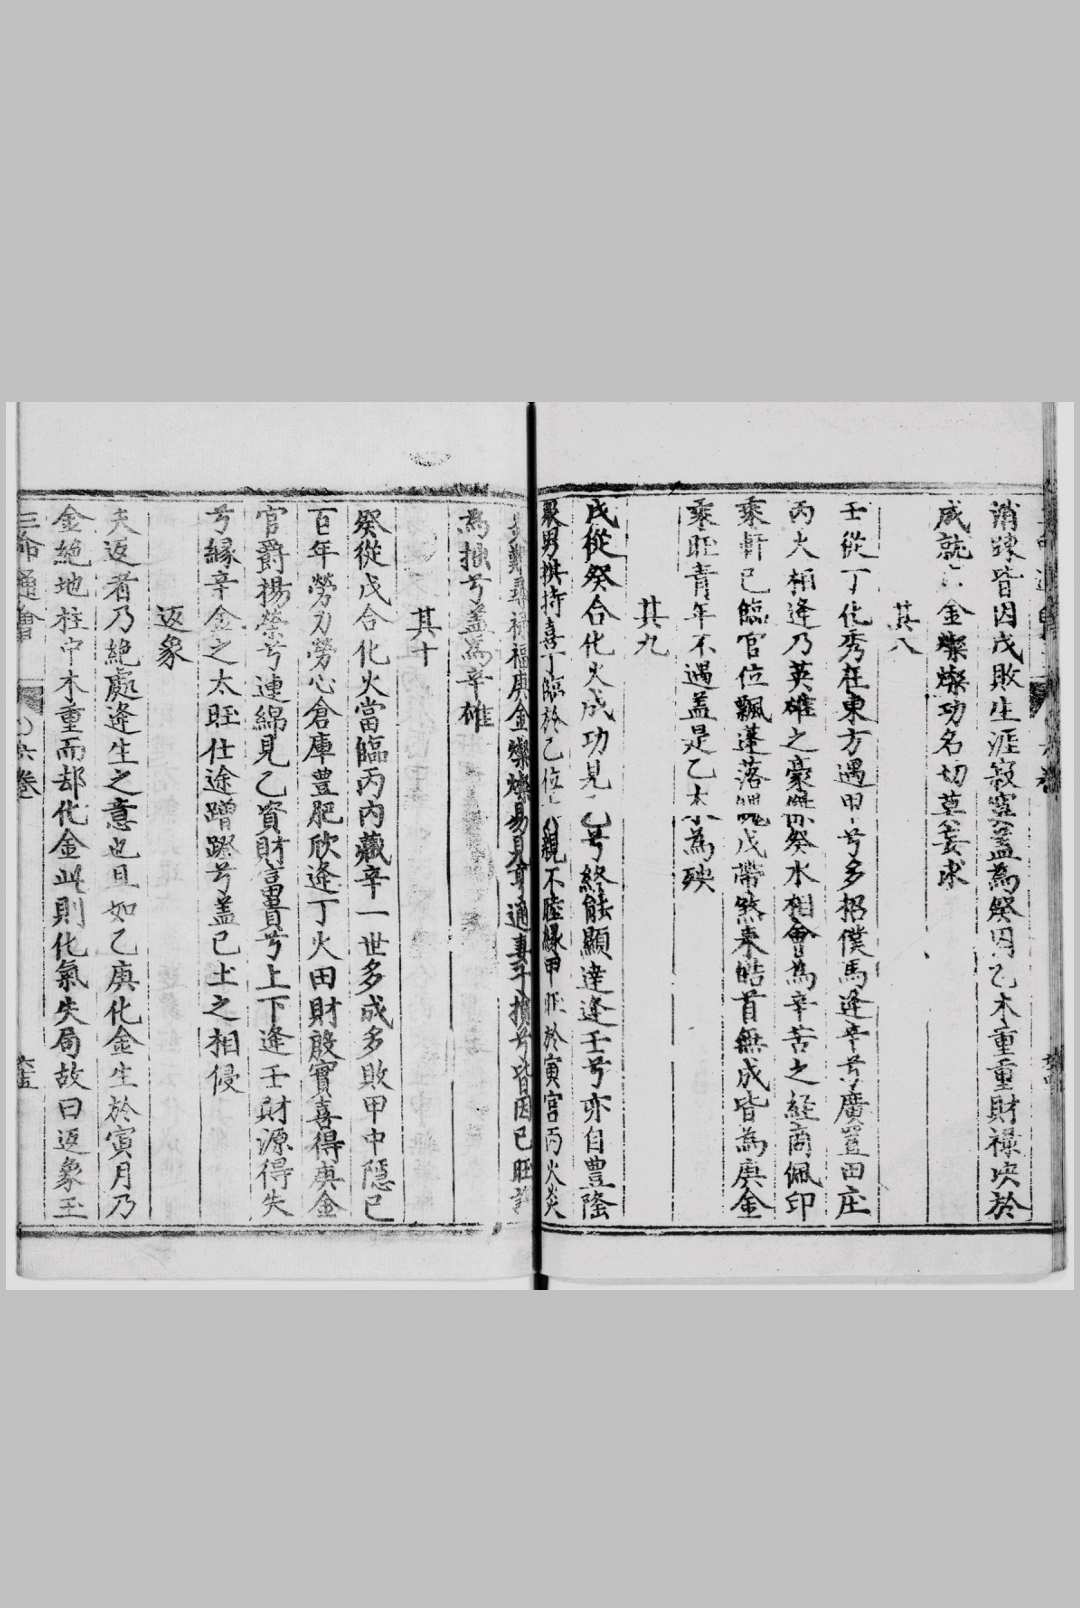 消踈皆因戊敗生涯寂寞盖為癸因乙木重重財祿決於
成就金燦燦功名切莫妄求
其八
壬從丁化秀在東方遇甲兮多招僕馬逢辛兮廣置田庄
丙火相逢乃英雄之豪傑癸水相會為辛苦之経商佩印
乘軒已臨官位飄蓬落魄戊帶煞来皓首無成皆為庚金
乘旺青年不遇盖是乙木為殃
其九
戊從癸合化火成功見乙兮終能顯達逢壬兮亦自豊隆
衆男拱持喜丁臨於乙位六親不睦縁甲旺於寅宮丙火炎
炎難尋福庚金燦燦易見亨通妻子損兮皆因己旺
為拙兮盖為辛雄
其十
癸從戊合化火當臨丙内藏辛一世多成多敗甲中隱已
百年勞力勞心倉庫豊肥欣逢丁火田財殷實喜得庚金
官爵揚榮兮連綿見乙資財富貴兮上下逢壬財源得失
兮縁辛金之太旺仕途蹭蹬兮盖已土之相侵
返象
夫返者乃絶處逢生之意也且如乙庚化金生於寅月乃
金絶地柱中木重而却化金此則化氣失局故曰返象玉
三命通會
六卷